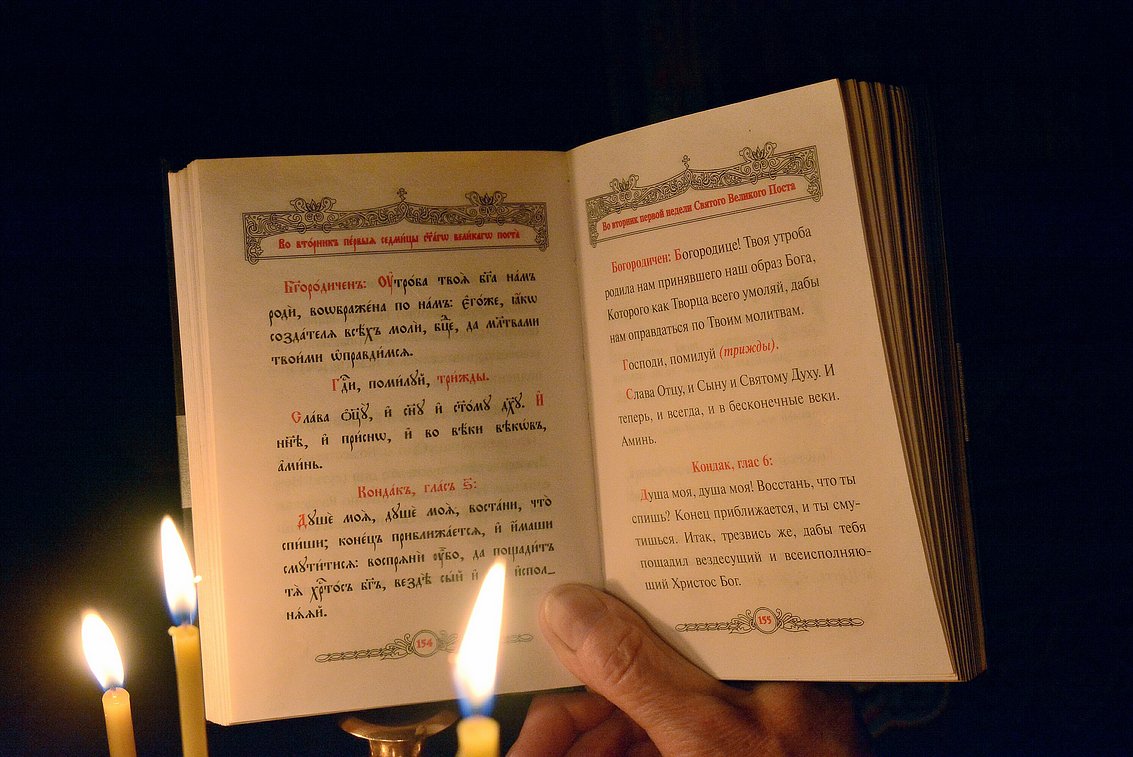 Во вто́рникъ пе́рвыя седми́цы ст҃а́гѡ вели́кагѡ поста̀
Бг҃оро́диченъ: Оу҆тро́ба твоѧ̀ бг҃а на́мъ
родѝ, воѡбраже́на по на́мъ: є҆го́же, ꙗ҆́кѡ
созда́телѧ всѣ́хъ молѝ, бцⷣе, да мл҃твами
твои́ми ѡ҆правди́мсѧ.
Гдⷭ҇и, поми́лꙋй, три́жды.
Сла́ва ѻ҆ц҃ꙋ̀, и҆ сн҃ꙋ и҆ ст҃о́мꙋ дх҃ꙋ. И҆
нн҃ѣ, и҆ при́снѡ, и҆ во вѣ́ки вѣкѡ́въ,
а҆ми́нь.
Конда́къ, гла́съ ѕ҃:
Дꙋшѐ моѧ̀, дꙋшѐ моѧ̀, воста́ни, что̀
спи́ши; коне́цъ приближа́етсѧ, и҆ и҆́маши
смꙋти́тисѧ: воспрѧнѝ ᲂу҆̀бо, да пощади́тъ
тѧ̀ хрⷭ҇то́съ бг҃ъ, вездѣ̀ сы́й и҆ и҆спол_
нѧ́ѧй.
154
Во вторник первой недели Святого Великого Поста
Богородичен: Богородице! Твоя утроба
родила нам принявшего наш образ Бога,
Которого как Творца всего умоляй, дабы
нам оправдаться по Твоим молитвам.
Господи, помилуй (трижды).
Слава Отцу, и Сыну и Святому Духу. И
теперь, и всегда, и в бесконечные веки.
Аминь.
Кондак, глас 6:
Душа моя, душа моя! Восстань, что ты
спишь? Конец приближается, и ты сму-
тишься. Итак, трезвись же, дабы тебя
пощадил вездесущий и всеисполняю-
щий Христос Бог.
155